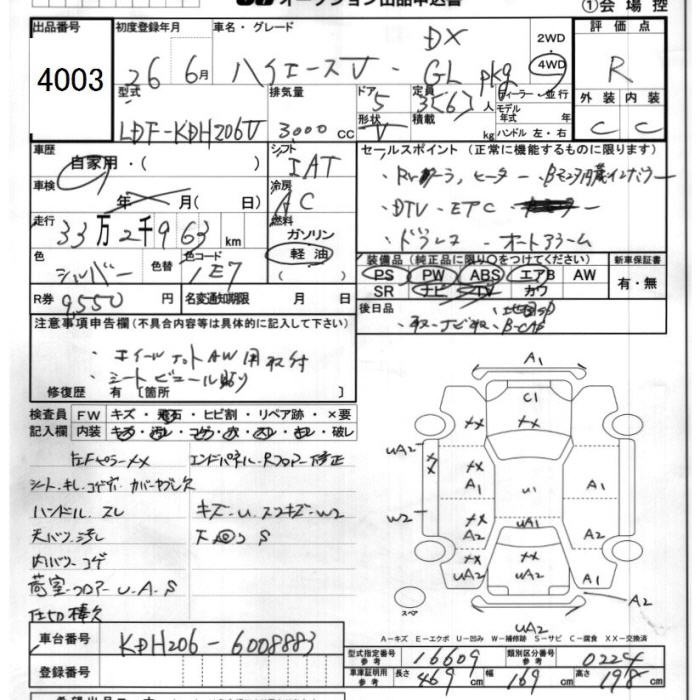 オークション出品申込書
①会場控
出品番号 初度登録年月 車名・グレード 評価点
4003 26 6月 ハイエースV・DX GL pkg 2WD 4WD R
型式 排気量 ドア 定員 ディーラー・並行 外装 内装
LDF-KDH206V 3,000cc 5 3(6)人 モデル年式 年式 C C
形状 V 積載 kg ハンドル 左・右
車歴 自家用・( ) シフト IAT セールスポイント(正常に機能するものに限ります)
車検 年 月( 日) 冷房 AC
・DTV・ETC
走行 33万2千963km 燃料 ガソリン 軽油 ( )
・ドラレコ・オートアラーム
色 シルバー 色替 色コード 1E7
装備品(純正品に限り○をつけてください) 新車保証書
PS PW ABS エアB AW 有・無
SR ナビ TV カワ
R券 9,550円 名変通知期限 月 日 後日品
注意事項申告欄(不具合内容等は具体的に記入して下さい)
・ホイールナットAW用取付
・シートビニール貼り
修復歴 有[箇所 ]
検査員 FW キズ・飛石・ヒビ割・リペア跡・×要
記入欄 内装 キズ・汚レ・コゲ・穴・スレ・キレ・破レ
左Fピラー××  エンドパネル・Rフロアー修正
シート.キレ.コゲ穴.カバーヤブレ欠
ハンドル.スレ キズ・U.スリキズ・W2
天バリ.汚レ 下回りS
内バリ.コゲ
荷室・フロアー U.A.S
仕切棒欠
A1
C1
×× ××
uA2 ×× ××
A1 A1
U1
W2 ×× uA1
A2 A2
×× ××
uA2 uA2 A1
A2
スペア
uA2
A−キズ E−エクボ U−凹み W−補修跡 S−サビ C−腐食 XX−交換済
車台番号 KDH206-6008883
型式指定番号 参考 16609 類別区分番号 参考 0224
登録番号
車庫証明用 参考 長さ 469cm 幅 169cm 高さ 198cm